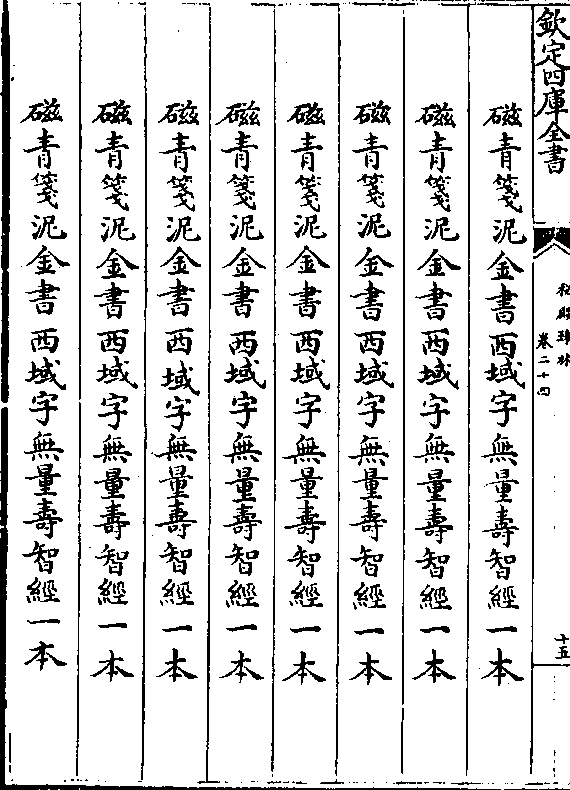 欽定四庫全書
秘殿珠林
卷二十四
十五
磁青箋泥金書西域字無量壽智經一本
磁青箋泥金書西域字無量壽智經一本
磁青箋泥金書西域字無量壽智經一本
磁青箋泥金書西域字無量壽智經一本
磁青箋泥金書西域字無量壽智經一本
磁青箋泥金書西域字無量壽智經一本
磁青箋泥金書西域字無量壽智經一本
磁青箋泥金書西域字無量壽智經一本